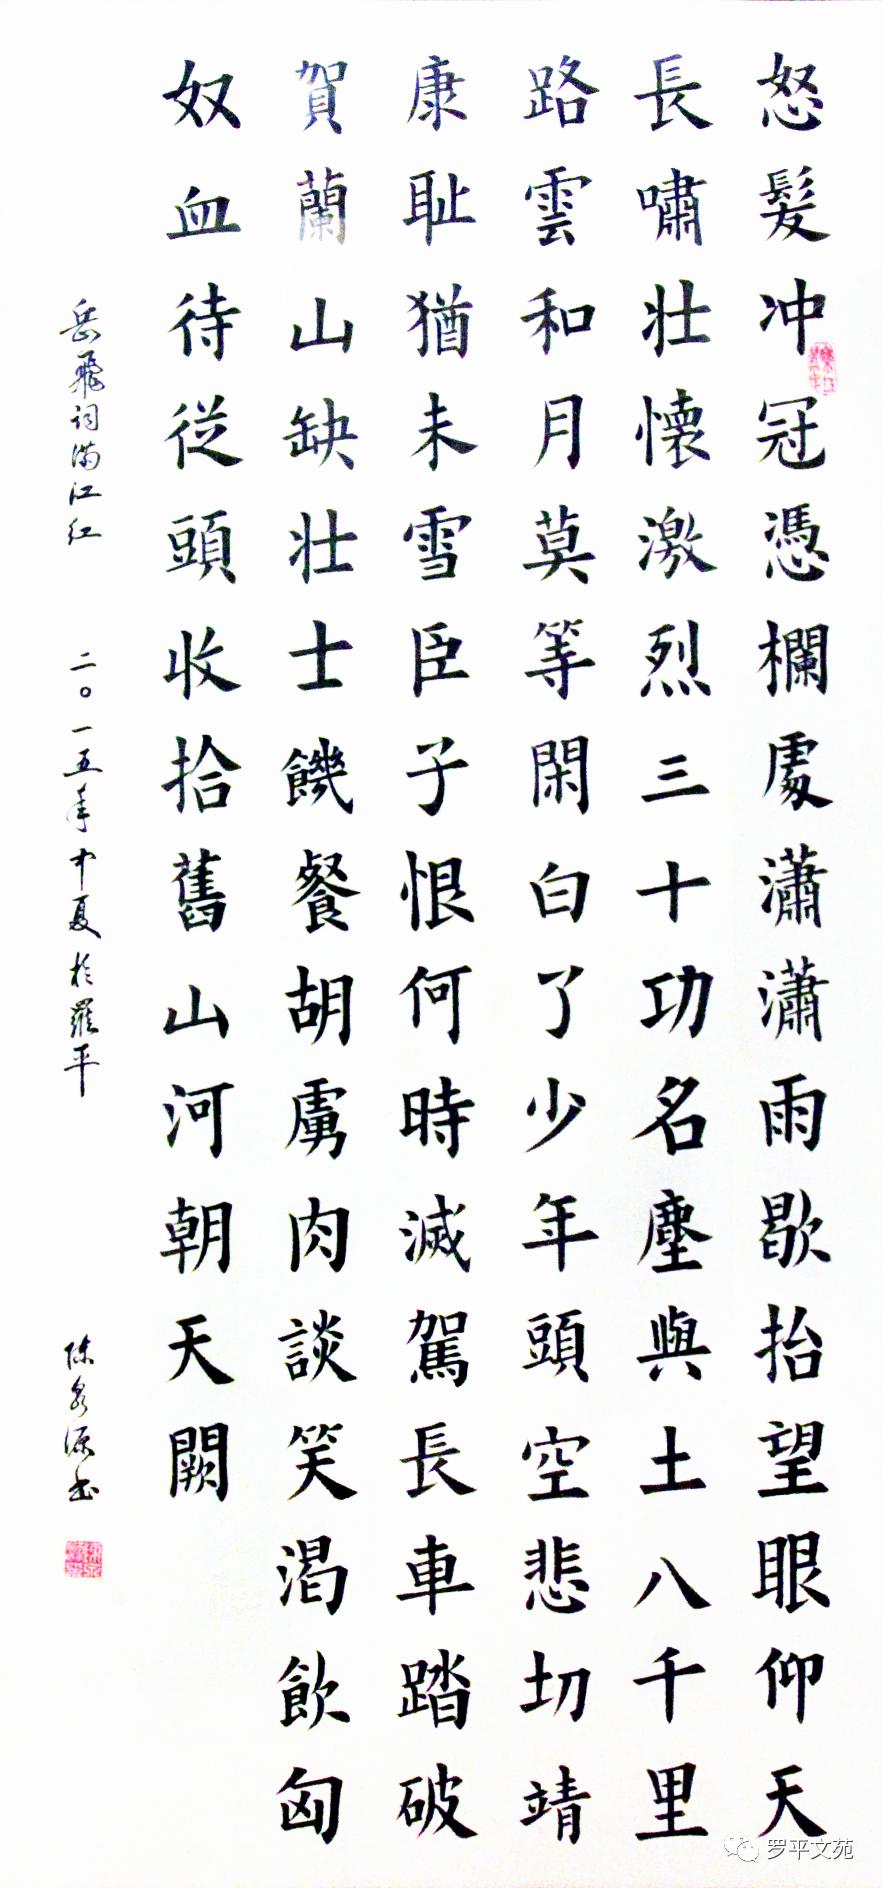 怒髮冲冠憑欄處瀟瀟雨歇抬望眼仰天
長嘯壯懷激烈三十功名塵與土八千里
路雲和月莫等閑白了少年頭空悲切靖
康耻猶未雪臣子恨何時滅駕長車踏破
賀蘭山缺壯士饑餐胡虜肉談笑渴飲匈
奴血待從頭收拾舊山河朝天闕
岳飛词满江红 二〇一五年中夏於羅平 陈泉源书
罗平文苑